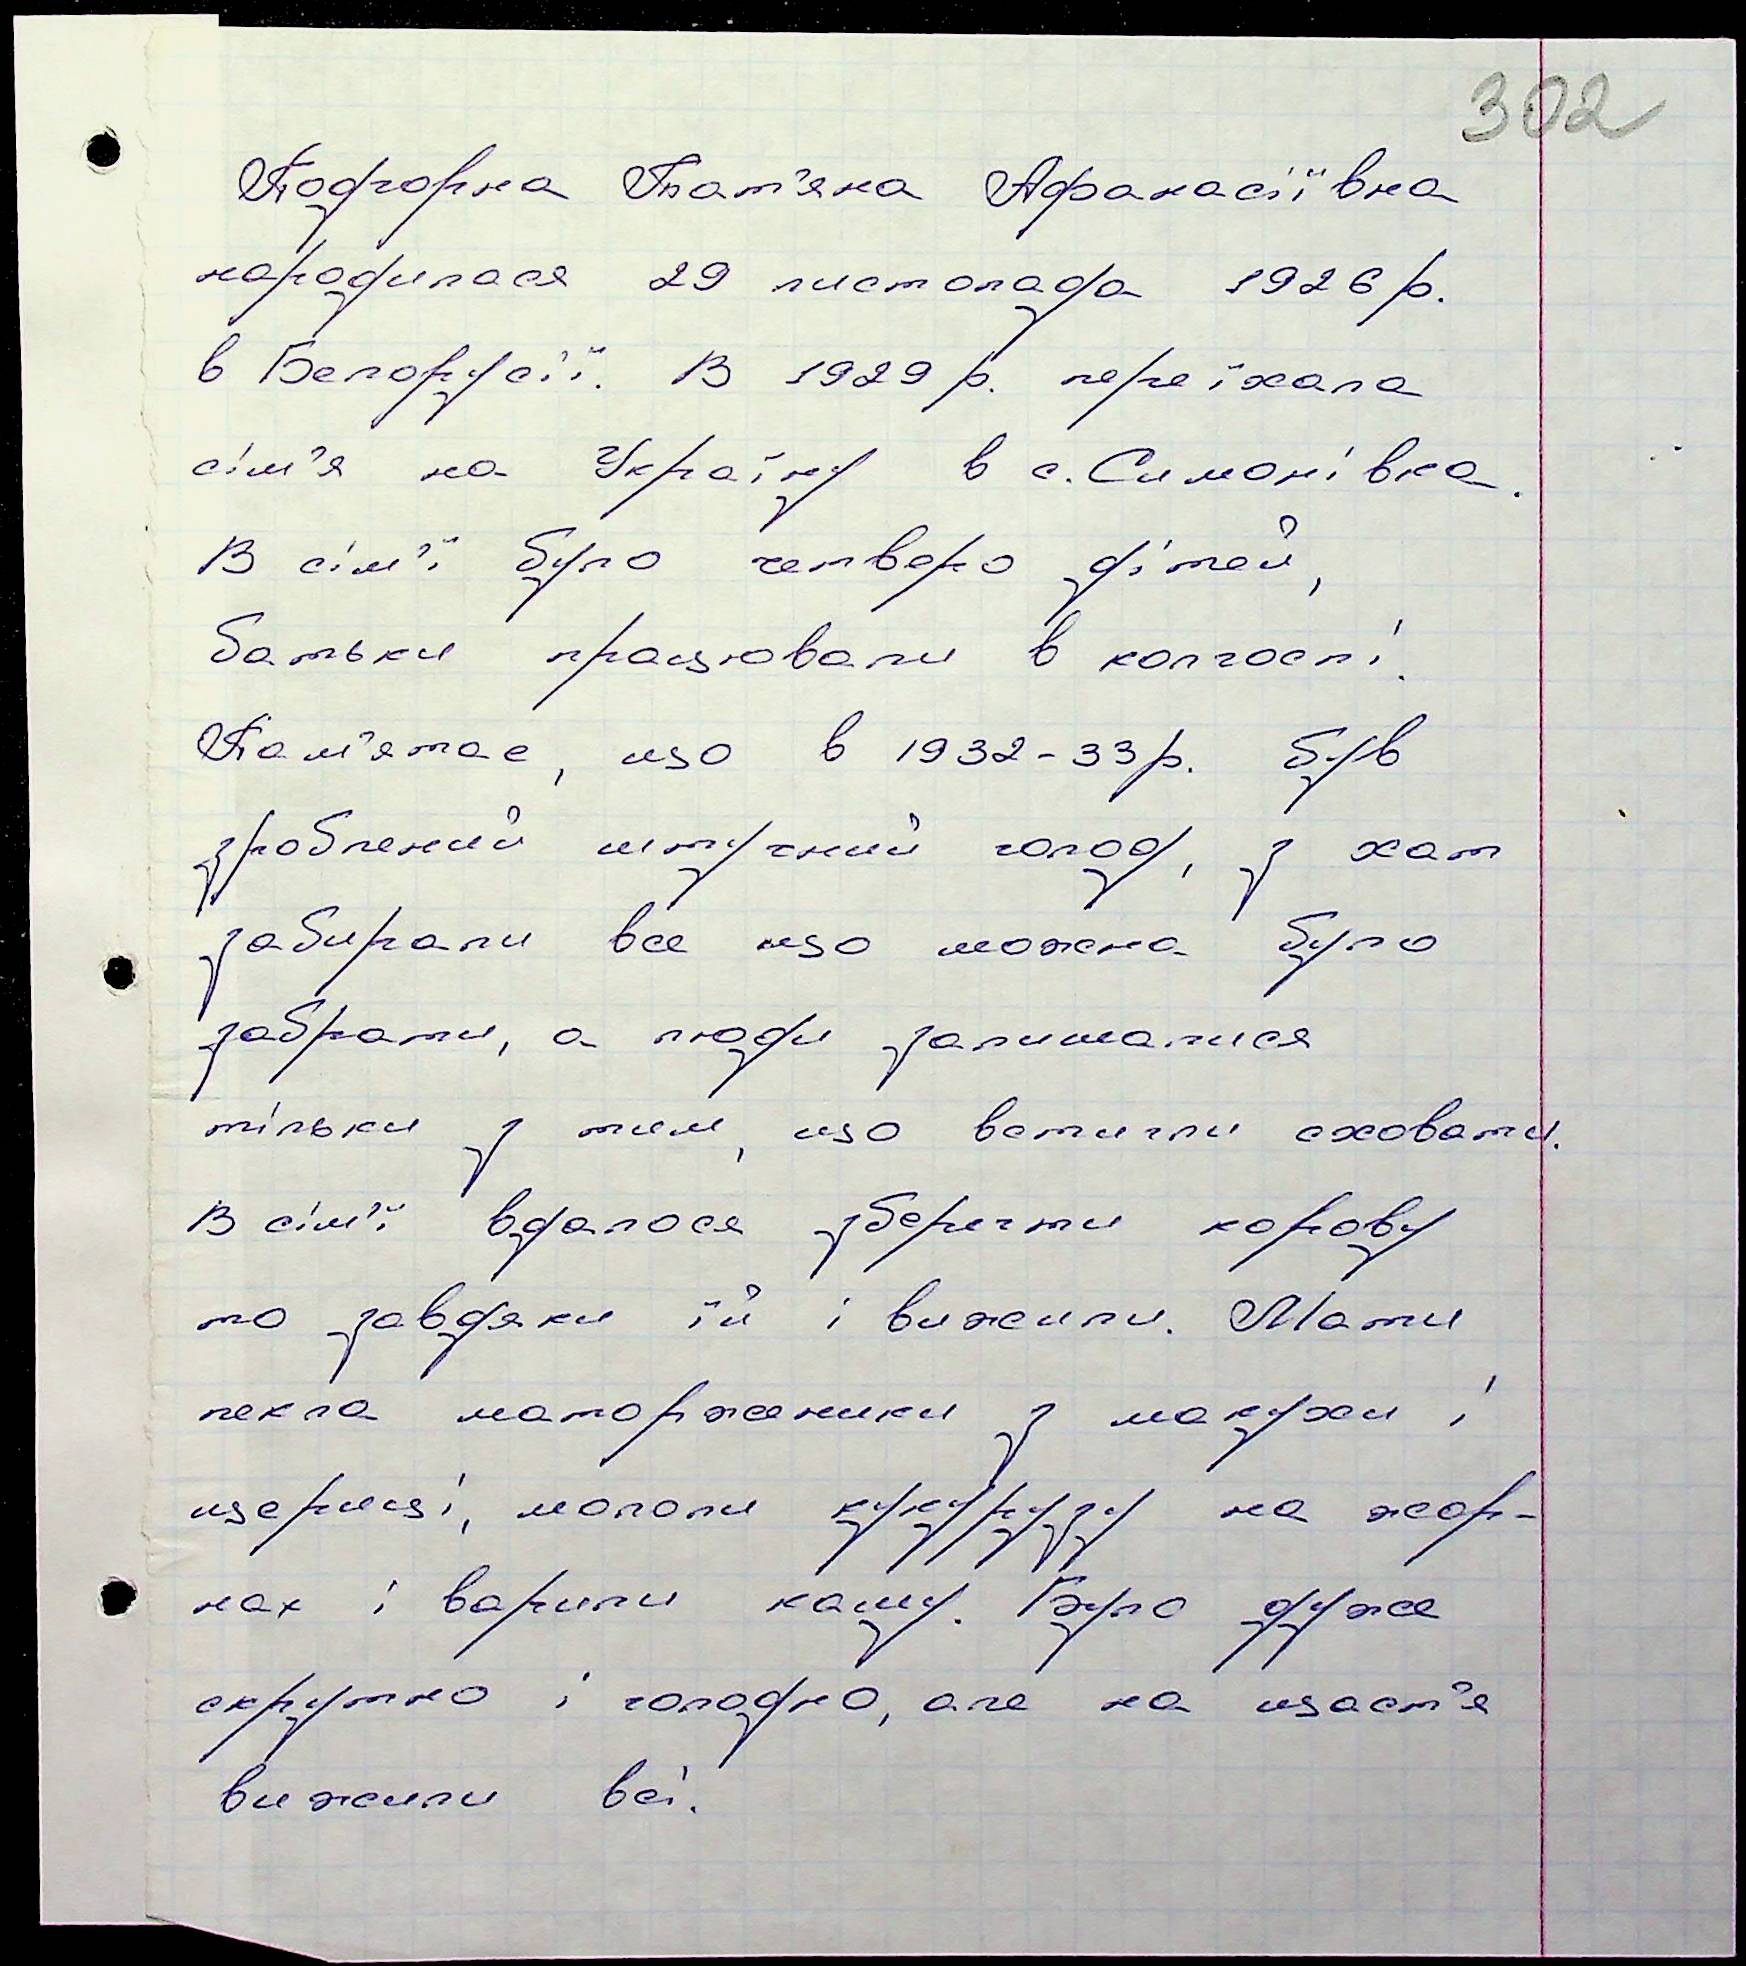 302
Подгорна Тат'яна Афанасіївна
народилася 29 листопада 1926 р.
в Белорусії. В 1929 р. переїхала
сім'я на Україну в с. Симонівка.
В сім'ї було четверо дітей,
батьки працювали в колгоспі.
Пам'ятає, що в 1932-33 р. був
зроблений штучний голод, з хат
забирали все що можна було
забрати, а люди залишалися
тільки з тим, що встигли сховати.
В сім'ї вдалося зберегти корову
то завдяки їй і вижили. Мати
пекла маторженики з макухи і
щериці, мололи кукурузу на жор-
нах і варили кашу. Було дуже
скрутно і голодно, але на щаст'я
вижили всі.